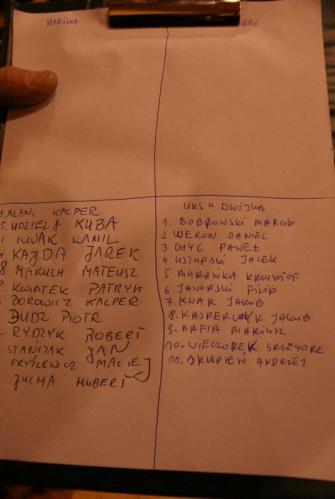 MARINA
ALANI KACPER
UDZIELA KUBA
KWAK KAMIL
KAJDA JAREK
8 MAKUCH MATEUSZ
KWIATEK PATRYK
BOROWICZ KACPER
DUDZ PIOTR
RYDZYK ROBERT
STAŃCZAK JAN
FRYŹLEWICZ MACIEJ
ZUCHA HUBERT
UKS U DWÓJKA
1. BOBROWSKI MARCIN
2 WERON DANIEL
3 CHYC PAWEŁ
4 USTUPSKI JACEK
5 MARDUŁA KRZYSZTOF
6 JAWORSKI FILIP
7 KWAK JAKUB
8. KASPERCZYK JAKUB
9. BAFIA MARIUSZ
10. WIECZOREK GRZEGORZ
11. SKUPIEŃ ANDRZEJ